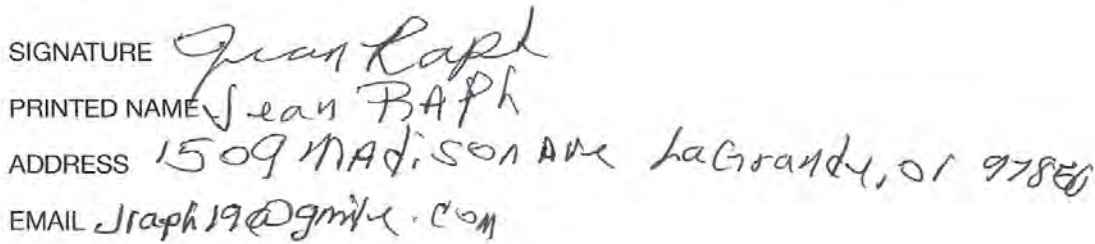 SIGNATURE Jean Raph
PRINTED NAME Jean RAPh
ADDRESS 1509 MAdison Ave LaGrande, Or 97850
EMAIL Jraph19@gmile.com